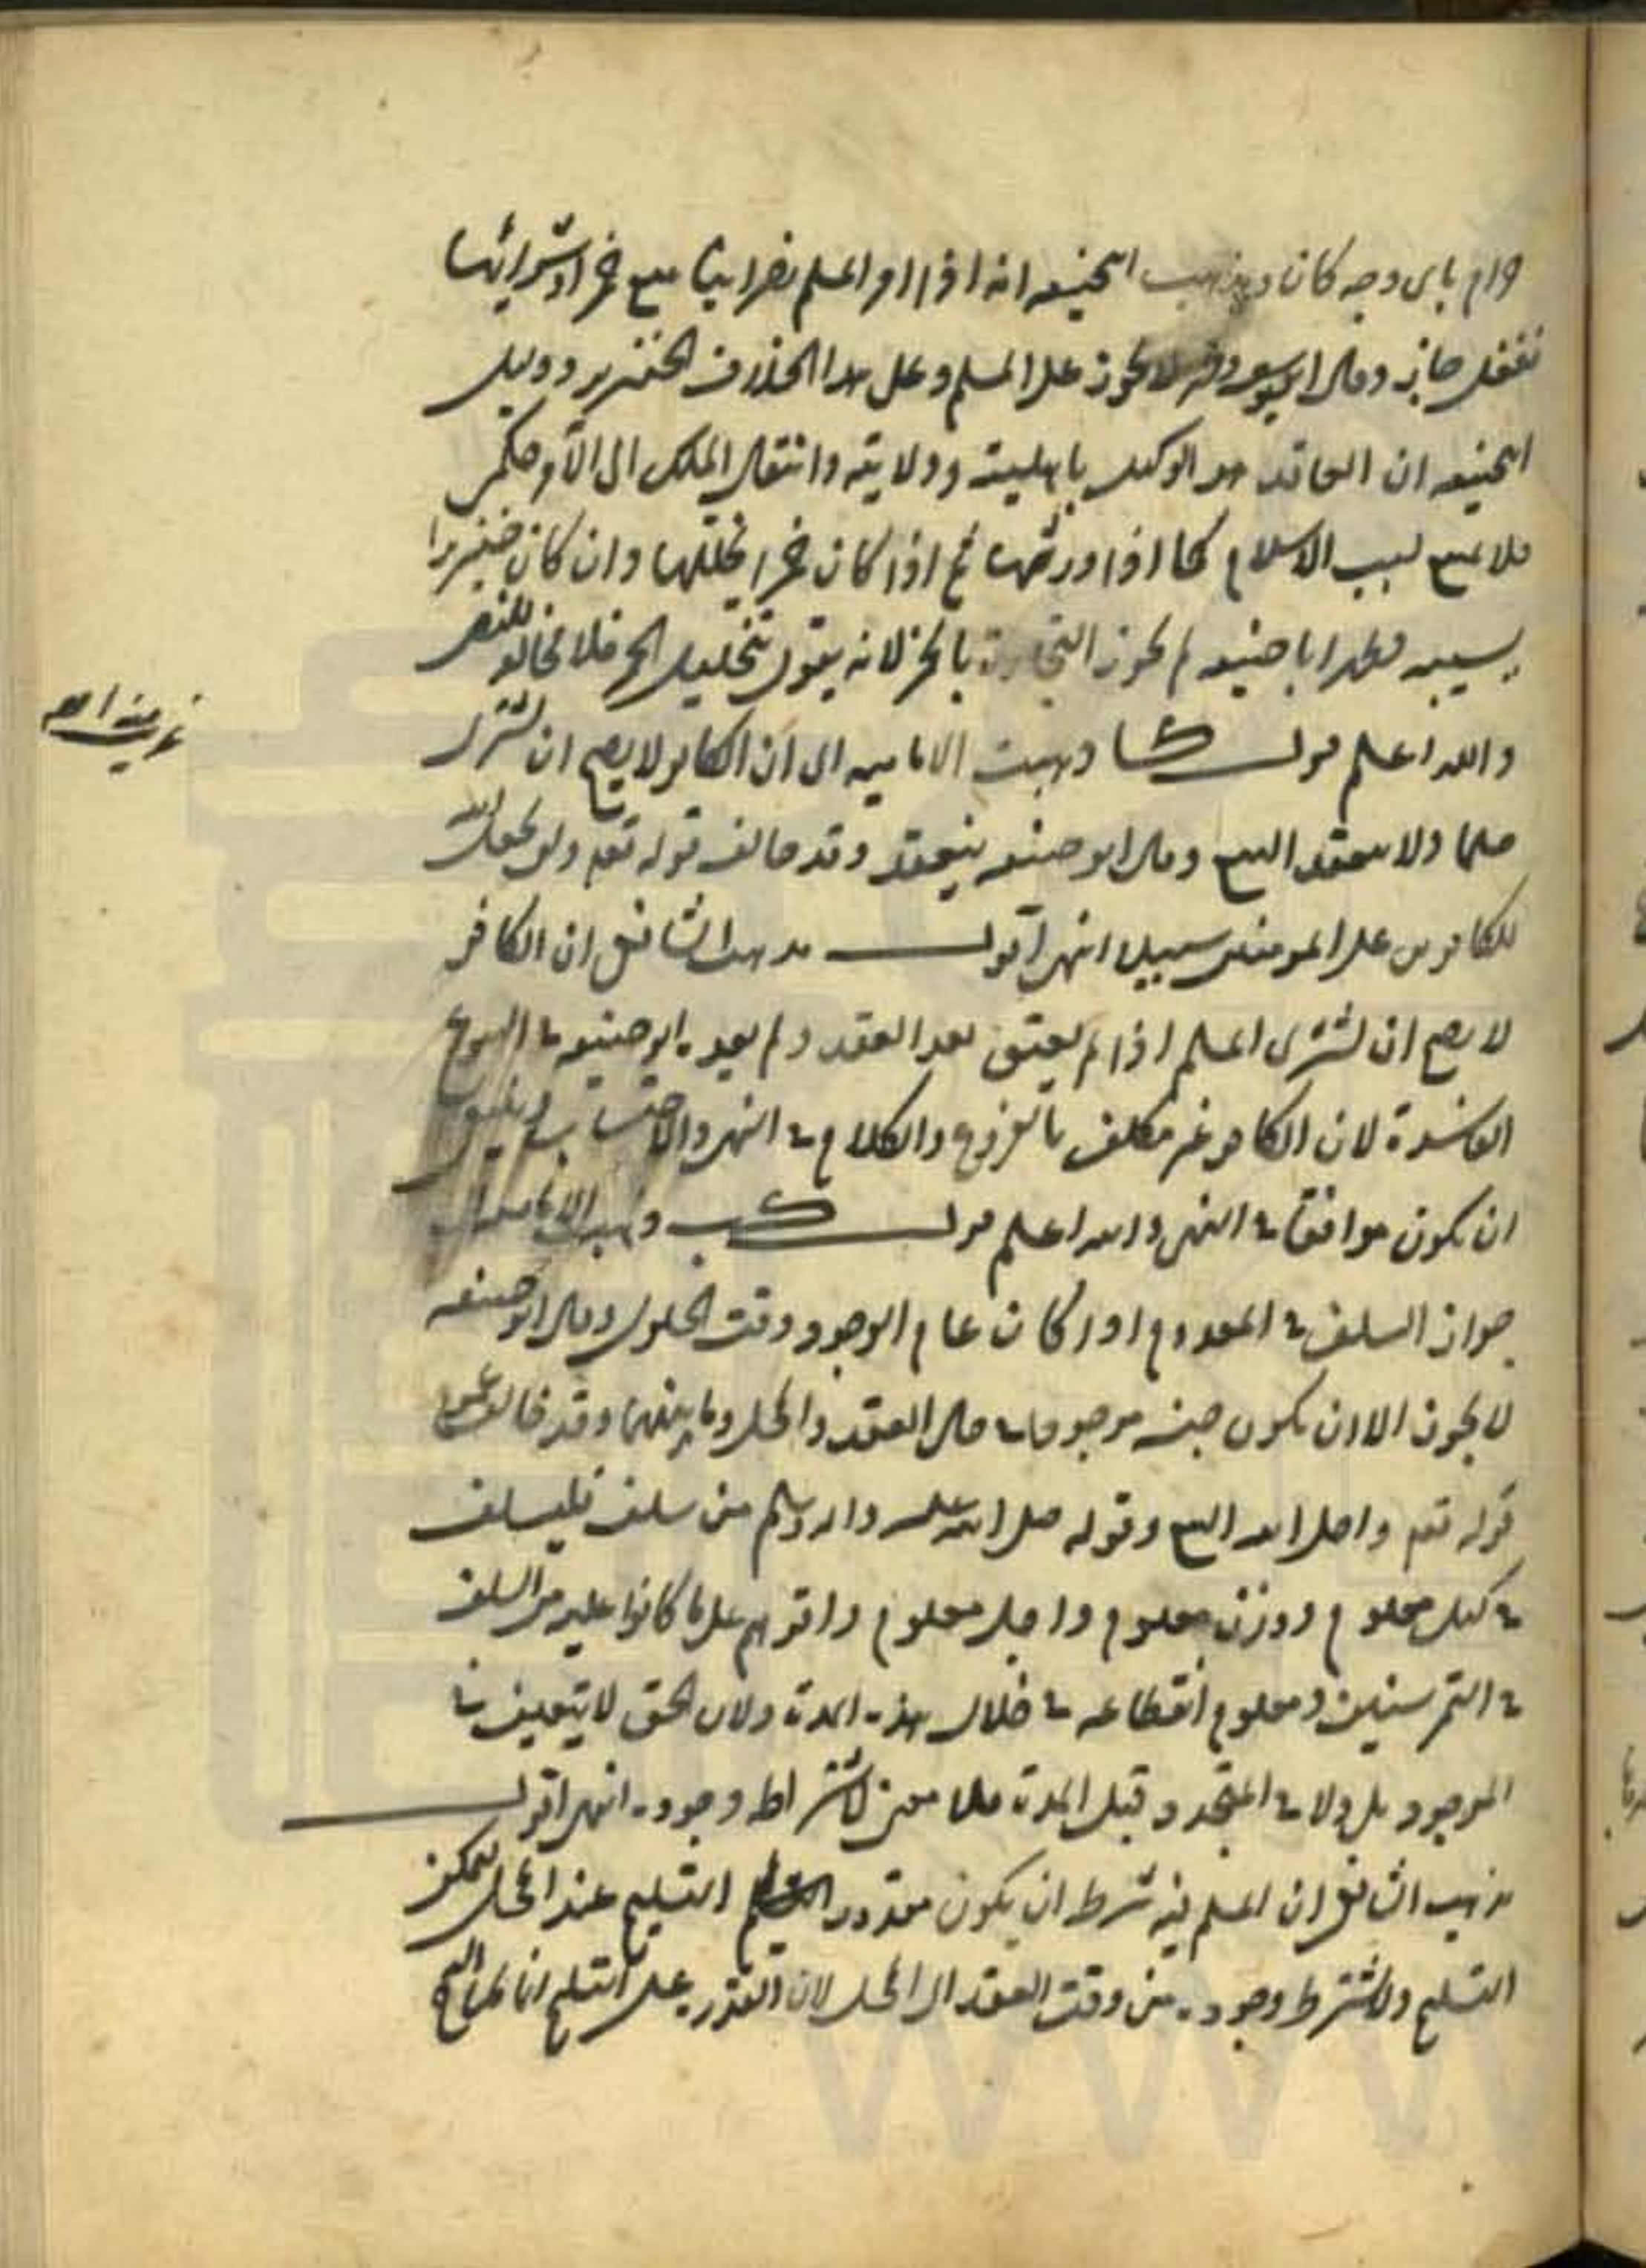 حرام باى وجه كان ومذهب ابيحنيفه انه اذا امر المسلم نصرانيا ببيع خمر او شرائها
ففعل جاز وقال ابو يوسف لا يجوز على المسلم وعلى هذا الخلاف الخنزير ودليل
ابيحنيفه ان العاقد هو الوكيل باهليته وولايته وانتقال الملك الى الآمر حكمى
فلا يمتنع بسبب الاسلام كما اذا ورثهما ثم اذا كان خمرا يخللها وان كان خنزيرا
يسيبه فظهر ابا حنيفه لم يجوز التجارة بالخمر لانه يقول بتخليل الخمر فلا يخالف للنص
والله اعلم قولـــه كـــا ذهبت الاماميه الى ان الكافر لا يصح ان يشترى
مسلما ولا ينعقد البيع وقال ابو حنيفه ينعقد وقد خالف قوله تعم ولن يجعل الله
للكافرين على المومنين سبيلا انتهى اقول ـــ مذهب الشافعى ان الكافر
لا يصح ان يشترى المسلم اذا لم يعتق بعد العقد ولم يعده ابو حنيفه فى البيوع
الفاسدة لان الكافر غير مكلف بالفروع والكلام فى النهى والاحتساب
ان يكون موافقا فى النهى والله اعلم قولـــه كـــب ذهبت الاماميه الى
جواز السلف فى المعدوم اذا كان عام الوجود وقت الحلول وقال ابو حنيفه
لا يجوز الا ان يكون جنسه موجودا فى حال العقد والمحل وما بينهما وقد خالف عموم
قوله تعم واحل الله البيع وقوله صلى الله عليه واله وسلم من سلف فليسلف
فى كيل معلوم ووزن معلوم واجل معلوم واقرهم على ما كانوا عليه من السلف
فى التمر سنين ومعلوم انقطاعه فى خلال هذه المدة ولان الحق لا يتعين فى
الموجود بل ولا فى المتجدد قبل المدة فلا معنى لاشتراط وجوده انتهى اقول ـــ
مذهب الشافعى ان المسلم فيه شرط ان يكون مقدور التسليم عند المحل
التسليم ولا يشترط وجوده من وقت العقد الى المحل لان القدرة على التسليم انما